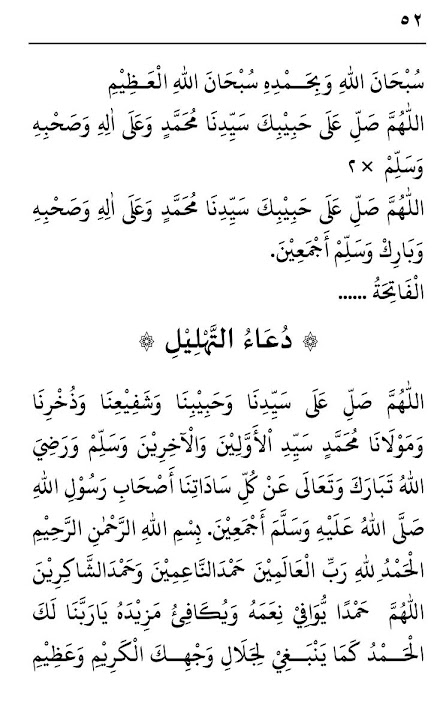 ٥٢
سُبْحَانَ اللهِ وَبِحَمْدِهِ سُبْحَانَ اللهِ الْعَظِيْمِ
اللّٰهُمَّ صَلِّ عَلَى حَبِيْبِكَ سَيِّدِنَا مُحَمَّدٍ وَعَلَى اٰلِهِ وَصَحْبِهِ
وَسَلِّمْ ×٢
اللّٰهُمَّ صَلِّ عَلَى حَبِيْبِكَ سَيِّدِنَا مُحَمَّدٍ وَعَلَى اٰلِهِ وَصَحْبِهِ
وَبَارِكْ وَسَلِّمْ أَجْمَعِيْنَ.
الْفَاتِحَةُ ......
دُعَاءُ التَّهْلِيْلِ
اللّٰهُمَّ صَلِّ عَلَى سَيِّدِنَا وَحَبِيْبِنَا وَشَفِيْعِنَا وَذُخْرِنَا
وَمَوْلَانَا مُحَمَّدٍ سَيِّدِ الْأَوَّلِيْنَ وَالْآخِرِيْنَ وَسَلِّمْ وَرَضِيَ
اللهُ تَبَارَكَ وَتَعَالَى عَنْ كُلِّ سَادَاتِنَا أَصْحَابِ رَسُوْلِ اللهِ
صَلَّى اللهُ عَلَيْهِ وَسَلَّمَ أَجْمَعِيْنَ. بِسْمِ اللهِ الرَّحْمٰنِ الرَّحِيْمِ
الْحَمْدُ لِلهِ رَبِّ الْعَالَمِيْنَ حَمْدَالنَّاعِمِيْنَ وَحَمْدَالشَّاكِرِيْنَ
اللّٰهُمَّ حَمْدًا يُّوَافِيْ نِعَمَهُ وَيُكَافِئُ مَزِيْدَهُ يَارَبَّنَا لَكَ
الْحَمْدُ كَمَا يَنْبَغِيْ لِجَلَالِ وَجْهِكَ الْكَرِيْمِ وَعَظِيْمِ